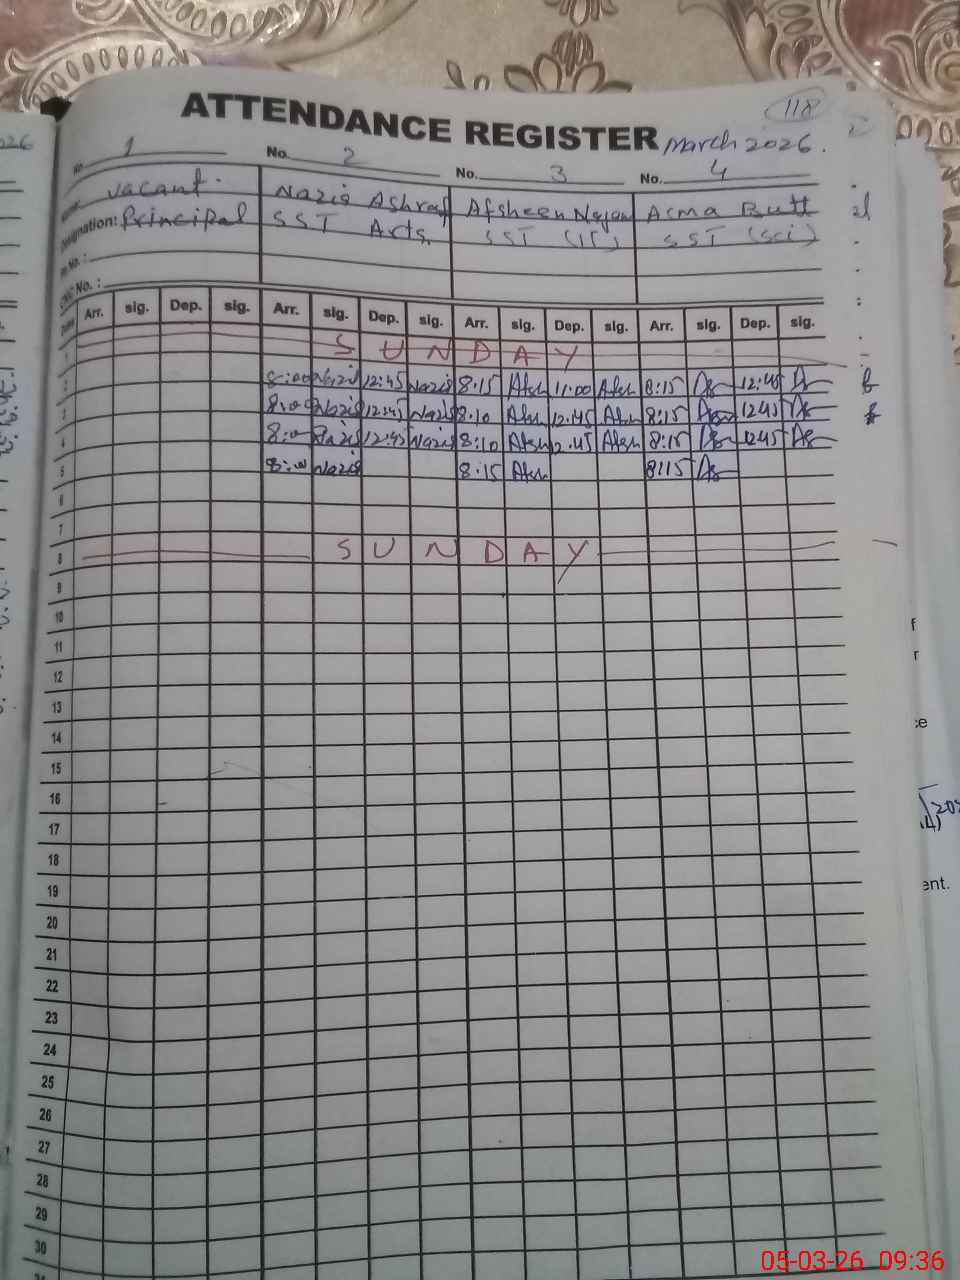 118
ATTENDANCE REGISTER March 2026.
No. 1 No. 2 No. 3 No. 4
Name: Vacant. Nazia Ashraf Afsheen Asma Butt
Designation: Principal SST Arts SST (IT) SST (Sci)
CNIC No. :
Date Arr. sig. Dep. sig. Arr. sig. Dep. sig. Arr. sig. Dep. sig. Arr. sig. Dep. sig.
1 SUNDAY
2 8:00 Nazia 12:45 Nazia 8:15 Afsh 11:00 Afsh 8:15 12:45
3 8:00 Nazia 12:45 Nazia 8:10 Afsh 12:45 Afsh 8:15 1245
4 8:0 Nazia 12:45 Nazia 8:10 Afsh 2:45 Afsh 8:15 1245
5 8:00 Nazia 8:15 Afsh 8:15
6
7
8 SUNDAY
9
10
11
12
13
14
15
16
17
18
19
20
21
22
23
24
25
26
27
28
29
30
05-03-26 09:36